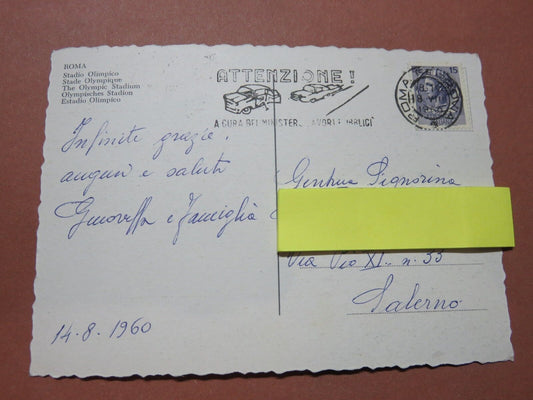 ROMA
Stadio Olimpico
Stade Olympique
The Olympic Stadium
Olympisches Stadion
Estadio Olimpico
ATTENZIONE!
A CURA DEL MINISTER. LAVORI PUBBLICI
15
ROMA
Infinite grazie,
auguri e saluti
Genoveffa e famiglia
Gentma Signorina
Via Pio XI. n. 33
Salerno
14.8.1960